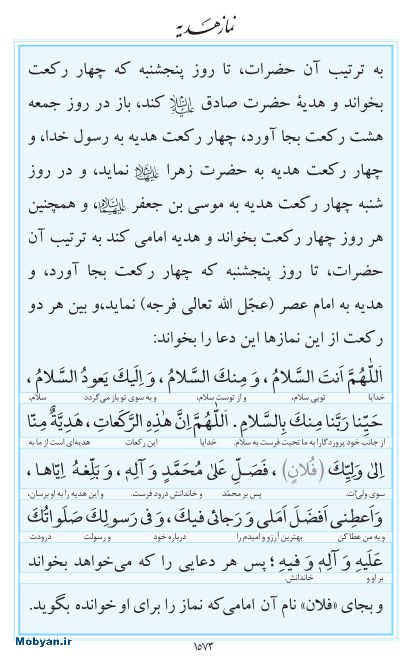 نماز هدیه
به ترتیب آن حضرات، تا روز پنجشنبه که چهار رکعت
بخواند و هدیهٔ حضرت صادق علیه‌السلام کند، باز در روز جمعه
هشت رکعت بجا آورد، چهار رکعت هدیه به رسول خدا، و
چهار رکعت هدیه به حضرت زهرا علیهاالسلام نماید، و در روز
شنبه چهار رکعت هدیه به موسی بن جعفر علیهماالسلام، و همچنین
هر روز چهار رکعت بخواند و هدیه امامی کند به ترتیب آن
حضرات، تا روز پنجشنبه که چهار رکعت بجا آورد، و
هدیه به امام عصر (عجّل الله تعالی فرجه) نماید،و بین هر دو
رکعت از این نمازها این دعا را بخواند:
اَللّٰهُمَّ اَنتَ السَّلامُ ، وَ مِنكَ السَّلامُ ، وَ اِلَيكَ يَعودُ السَّلامُ ،
خدایا تویی سلام، و از توست سلام، و به سوی تو باز می‌گردد سلام،
حَيِّنا رَبَّنا مِنكَ بِالسَّلامِ. اَللّٰهُمَّ اِنَّ هٰذِهِ الرَّكَعاتِ ، هَدِيَّةٌ مِنّا
از جانب خود پروردگارا به ما تحیت فرست به سلام. خدایا این رکعات هدیه‌ای است از ما به
اِلىٰ وَلِيِّكَ (فُلانٍ) ، فَصَلِّ عَلىٰ مُحَمَّدٍ وَ آلِهِ ، وَ بَلِّغهُ اِيّاها ،
سوی ولیّ‌ات. پس بر محمّد و خاندانش درود فرست. و این هدیه را به او برسان،
وَ اَعطِنى اَفضَلَ اَمَلى وَ رَجائى فيكَ ، وَ فى رَسولِكَ صَلَواتُكَ
و به من عطا کن بهترین آرزو و امیدم را درباره خود و رسولت درودت
عَلَيهِ وَ آلِهِ وَ فيهِ ؛ پس هر دعایی را که می‌خواهد بخواند
بر او و خاندانش.
و بجای «فلان» نام آن امامی‌که نماز را برای او خوانده بگوید.
Mobyan.ir
١٥٧٣